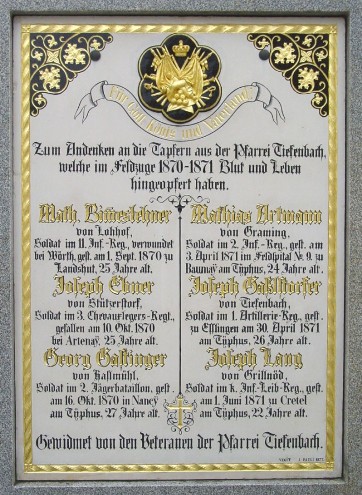 Für Gott, König und Vaterland!
Zum Andenken an die Tapfern aus der Pfarrei Tiefenbach,
welche im Feldzuge 1870-1871 Blut und Leben
hingeopfert haben.
Math.
von Lohhof,
Soldat im 11. Inf.-Reg., verwundet
bei Wörth, gest. am 1. Sept. 1870 zu
Landshut, 25 Jahre alt.
Joseph Ebner
von Stützersdorf,
Soldat im 3. Chevaurlegers-Regt.,
gefallen am 10. Okt. 1870
bei Artenay, 25 Jahre alt.
Georg Gahinger
von Kaßmühl,
Soldat im 2. Jägerbataillon, gest.
am 16. Okt. 1870 in Nancy
am Typhus, 27 Jahre alt.
Mathias Artmann
von Graming,
Soldat im 2. Inf.-Reg., gest. am
3. April 1871 im Feldspital No. 9. zu
Typhus, 24 Jahre alt.
Joseph Gaßlstorfer
von Tiefenbach,
Soldat im 1. Artillerie-Reg., gest.
zu Esslingen am 30. April 1871
am Typhus, 26 Jahre alt.
Joseph Lang
von Grillnöd,
Soldat im k. Inf.-Leib-Reg., gest.
am 1. Juni 1871 zu Cretel
am Typhus, 22 Jahre alt.
Gewidmet von den Veteranen der Pfarrei Tiefenbach.